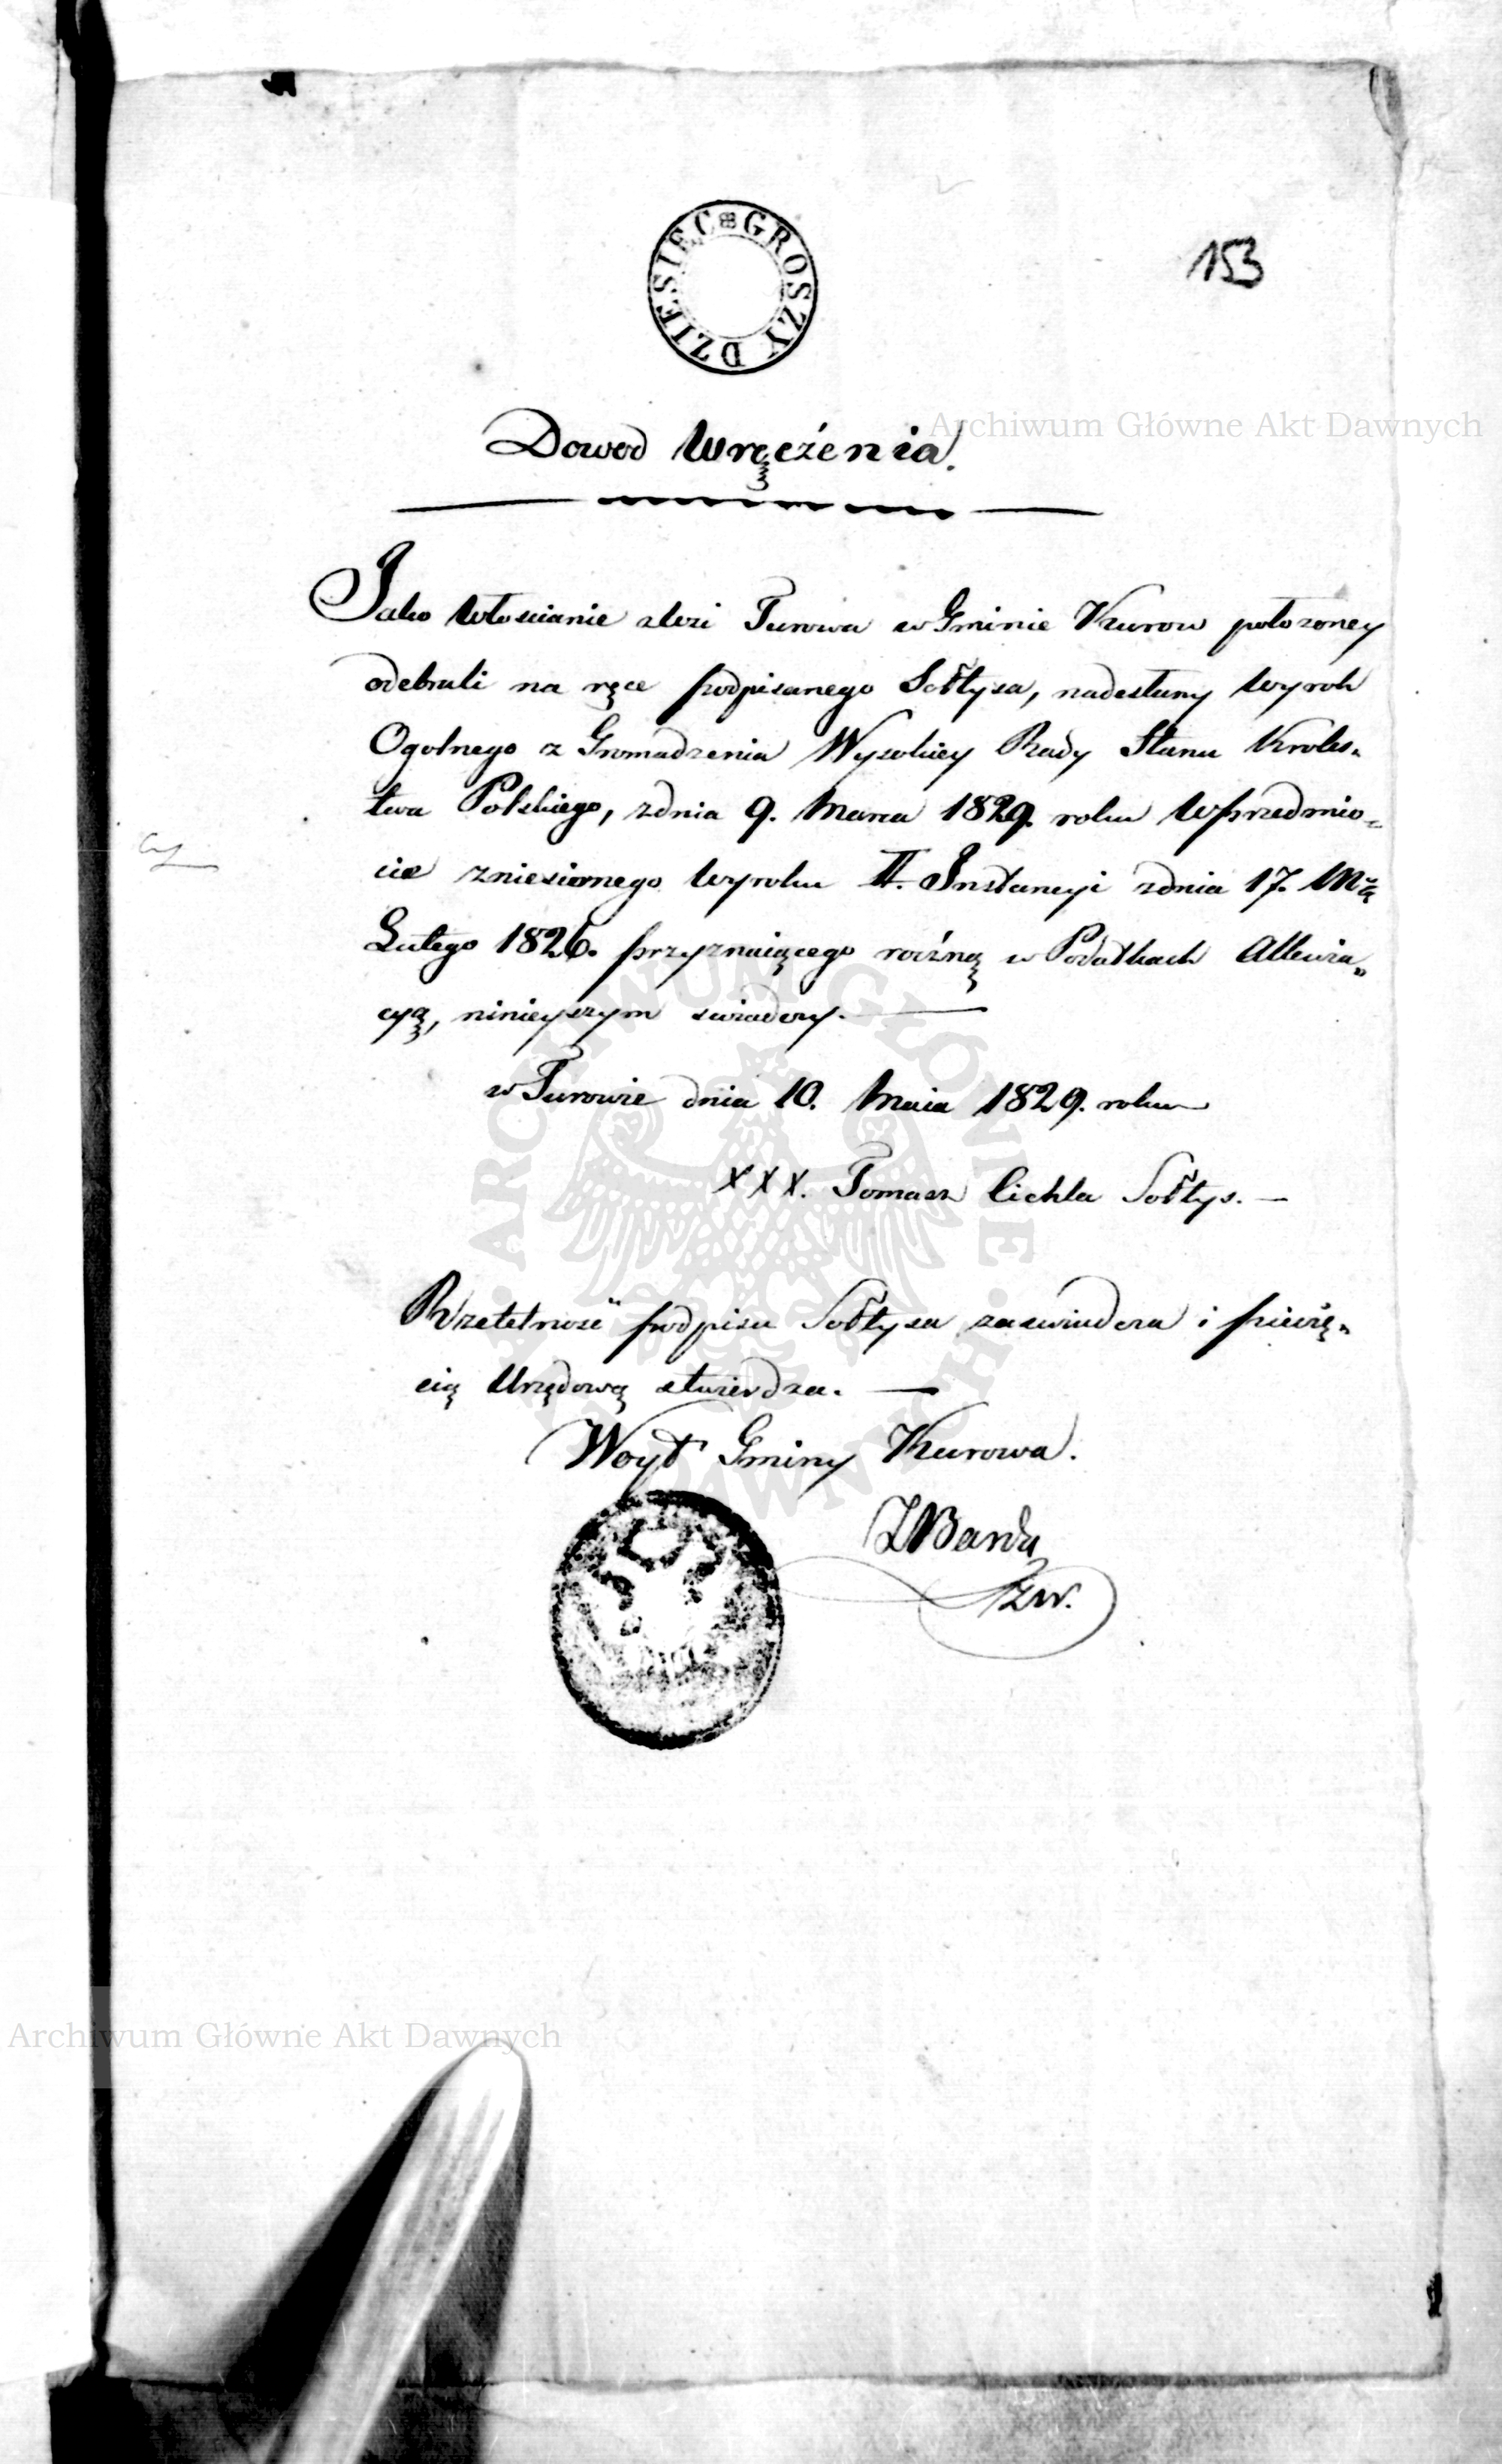 GROSZY DZIESIĘC
153
Archiwum Główne Akt Dawnych
Dowod Wręczenia.
Jako Włoscianie zWsi Turowa w Gminie Kurow połozoney
odebrali na ręce podpisanego Sołtysa, nadesłany Wyrok
Ogolnego z Gromadzenia Wysokiey Rady Stanu Kroles„
twa Polskiego, zdnia 9. Marca 1829. roku Wprzedmio„
cie zniesionego Wyroku II. Instancyi zdnia 17. Mca
Lutego 1826. przyznaiącego roczną w Podatkach Allewia„
cyą, ninieyszym swiadczy.—
w Turowie dnia 10. Maia 1829. roku
XXX. Tomasz Cichla Sołtys.—
Rzetelnosć podpisu Sołtysa zaswiadcza i pieczę„
cią Urzędową stwierdza.—
Woyt Gminy Kurowa.
Barda
ARCHIWUM GŁÓWNE AKT DAWNYCH
Archiwum Główne Akt Dawnych